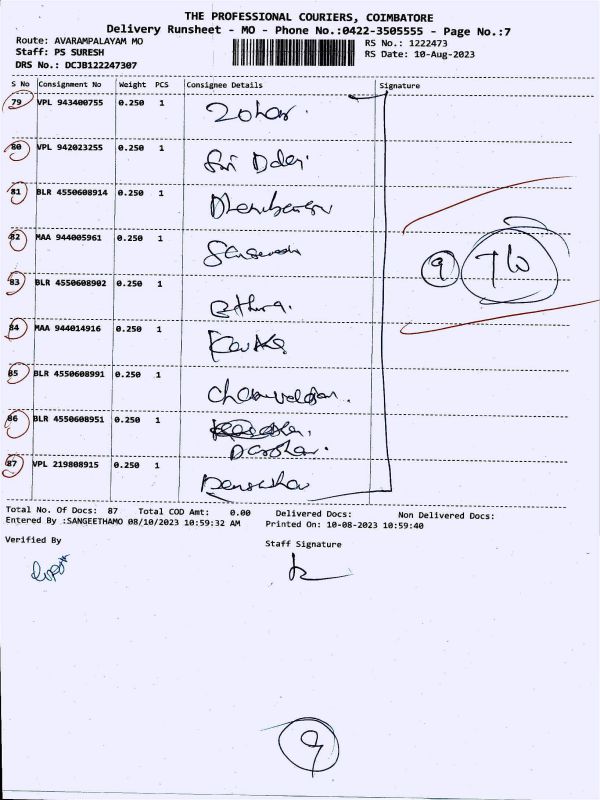 THE PROFESSIONAL COURIERS, COIMBATORE
Delivery Runsheet - MO - Phone No.:0422-3505555 - Page No.:7
Route: AVARAMPALAYAM MO
Staff: PS SURESH
DRS No.: DCJB122247307
RS No.: 1222473
RS Date: 10-Aug-2023
S No Consignment No Weight PCS Consignee Details Signature
79 VPL 943400755 0.250 1
80 VPL 942023255 0.250 1
81 BLR 4550608914 0.250 1
82 MAA 944005961 0.250 1
9
83 BLR 4550608902 0.250 1
84 MAA 944014916 0.250 1
85 BLR 4550608991 0.250 1
86 BLR 4550608951 0.250 1
87 VPL 219808915 0.250 1
Total No. Of Docs: 87 Total COD Amt: 0.00 Delivered Docs: Non Delivered Docs:
Entered By :SANGEETHAMO 08/10/2023 10:59:32 AM Printed On: 10-08-2023 10:59:40
Verified By Staff Signature
9